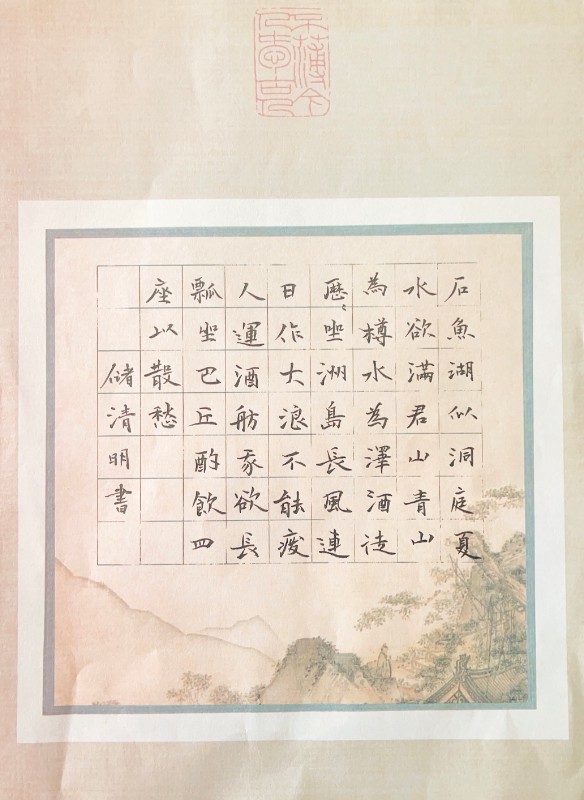 石魚湖似洞庭夏
水欲滿君山青山
為樽水為澤酒徒
歷〻坐洲島長風連
日作大浪不能
人運酒舫我欲長
瓢坐巴丘酌飲四
座以散愁
儲清明書